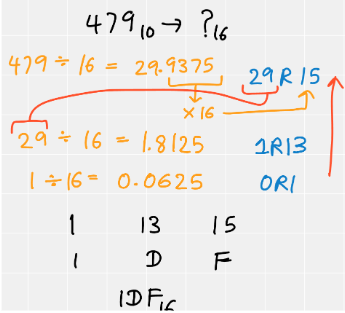 479₁₀ → ?₁₆
479 ÷ 16 = 29.9375 29 R 15
× 16
29 ÷ 16 = 1.8125 1R13
1 ÷ 16 = 0.0625 0R1
1 13 15
1 D F
1DF₁₆